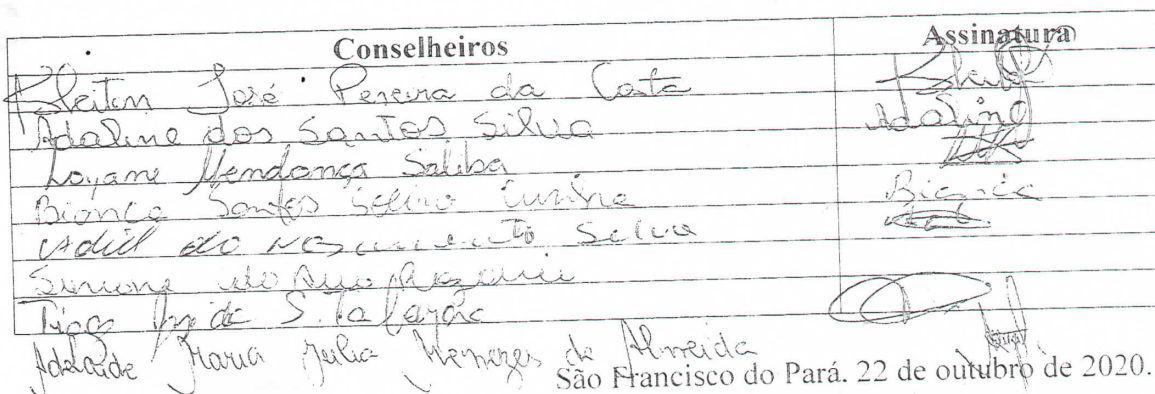 Conselheiros Assinatura
Kleiton José Pereira da Costa
Adaline dos Santos Silva Adaline
Loyane Mendonça Saliba
Bianca Santos Cunha Bianca
Adil do Nascimento Silva
Simone do
Tiago de S.
Adelaide Maria Julia Menezes de Almeida
São Francisco do Pará. 22 de outubro de 2020.